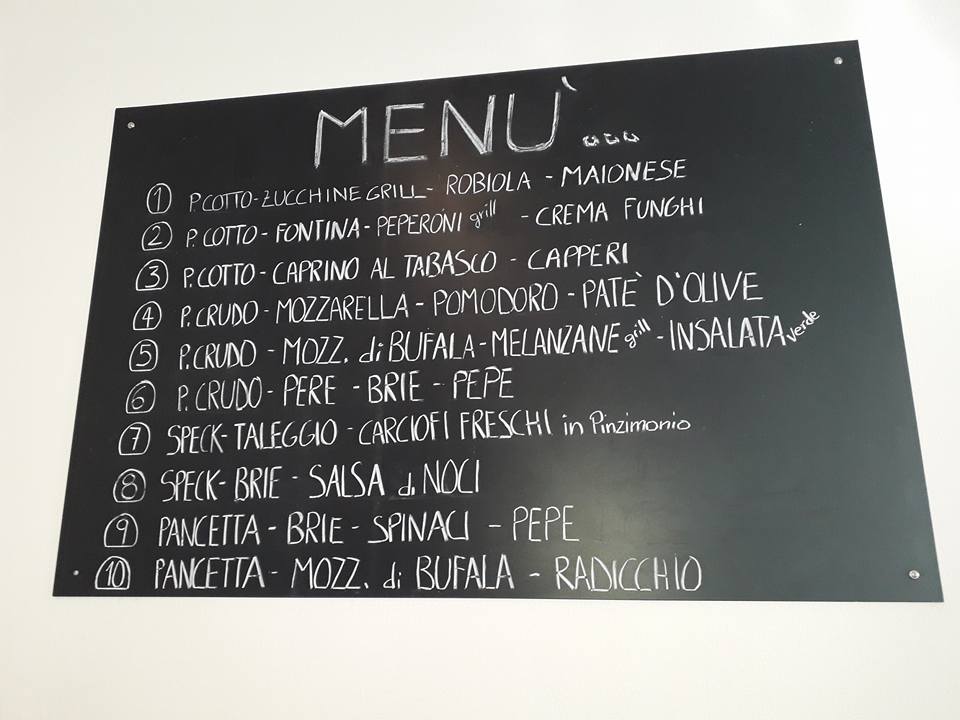 MENU` ...
1 P.COTTO-ZUCCHINE GRILL- ROBIOLA - MAIONESE
2 P. COTTO - FONTINA - PEPERONI grill - CREMA FUNGHI
3 P.COTTO - CAPRINO AL TABASCO - CAPPERI
4 P. CRUDO - MOZZARELLA - POMODORO - PATE` D'OLIVE
5 P.CRUDO - MOZZ. di BUFALA - MELANZANE grill - INSALATA verde
6 P. CRUDO - PERE - BRIE - PEPE
7 SPECK- TALEGGIO - CARCIOFI FRESCHI in Pinzimonio
8 SPECK- BRIE - SALSA di NOCI
9 PANCETTA - BRIE - SPINACI - PEPE
10 PANCETTA - MOZZ. di BUFALA - RADICCHIO